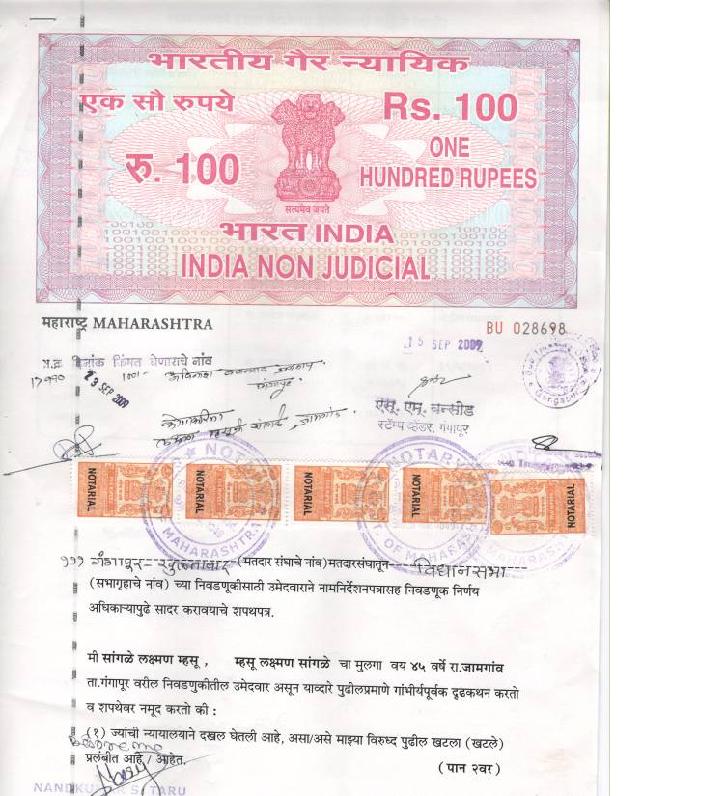 भारतीय गैर न्यायिक
एक सौ रुपये
Rs. 100
रु. 100
ONE
HUNDRED RUPEES
सत्यमेव जयते
भारत INDIA
INDIA NON JUDICIAL
महाराष्ट्र MAHARASHTRA
BU 028698
15 SEP 2009
दिनांक किंमत घेणाराचे नांव
23 SEP 2009
100/-
एस. एम. बन्सोड
स्टॅम्प व्हेंडर, गंगापूर
NOTARY
NOTARY
NOTARIAL
NOTARIAL
NOTARIAL
NOTARIAL
NOTARIAL
MAHARASHTRA
OF MAHARASHTRA
१११ गंगापूर - खुलताबाद - (मतदार संघाचे नांव) मतदारसंघातून ---- विधानसभा ---
(सभागृहाचे नांव) च्या निवडणूकीसाठी उमेदवाराने नामनिर्देशनपत्रासह निवडणूक निर्णय
अधिकाऱ्यापुढे सादर करावयाचे शपथपत्र.
मी सांगळे लक्ष्मण म्हसू , म्हसू लक्ष्मण सांगळे चा मुलगा वय ४५ वर्षे रा.जामगांव
ता.गंगापूर वरील निवडणुकीतील उमेदवार असून याव्दारे पुढीलप्रमाणे गांभीर्यपूर्वक दृढकथन करतो
व शपथेवर नमूद करतो की :
(१) ज्यांची न्यायालयाने दखल घेतली आहे, असा/असे माझ्या विरुध्द पुढील खटला (खटले)
BEFORE ME
प्रलंबीत आहे / आहेत.
(पान २वर)